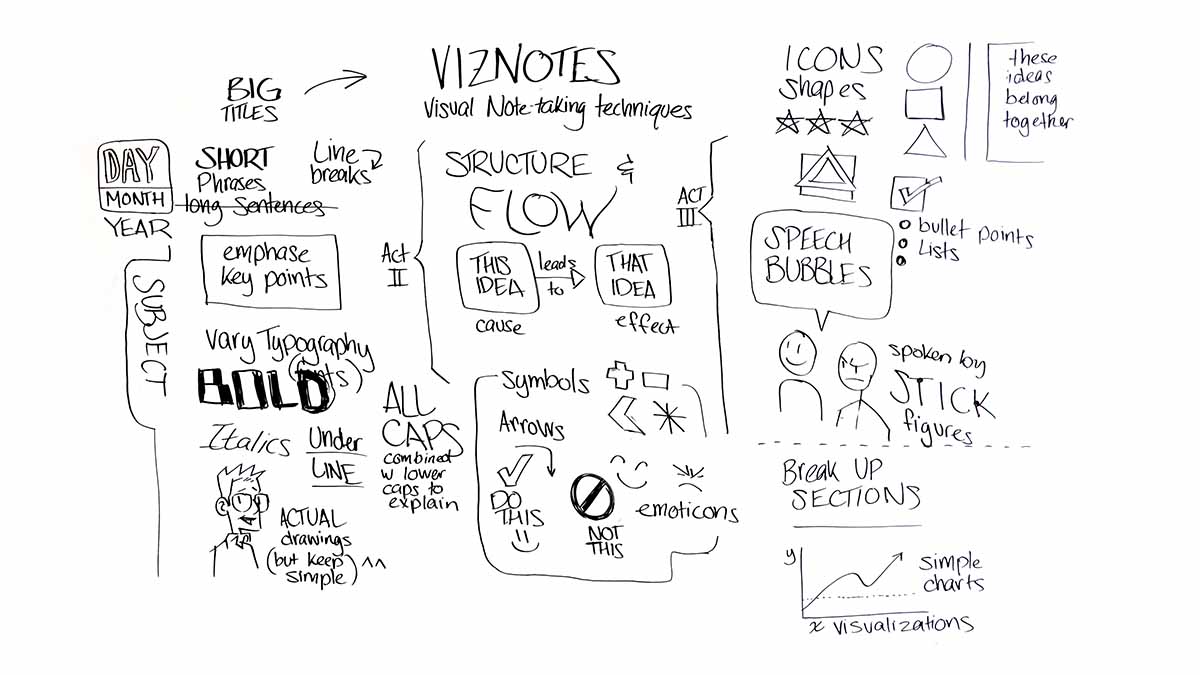 VIZNOTES
Visual Note-taking techniques
BIG
TITLES
DAY
MONTH
YEAR
SUBJECT
SHORT
Phrases
long Sentences
Line
breaks
emphase
key points
Vary Typography
(fonts)
BOLD
Italics
Under
LINE
ALL
CAPS
combined
w lower
caps to
explain
ACTUAL
drawings
(but keep
simple) ^^
Act
II
STRUCTURE &
FLOW
THIS
IDEA
leads
to
THAT
IDEA
cause
effect
Symbols
Arrows
DO
THIS
NOT
THIS
emoticons
ACT
III
ICONS
shapes
these
ideas
belong
together
bullet points
Lists
SPEECH
BUBBLES
spoken by
STICK
figures
Break UP
SECTIONS
y
simple
charts
x visualizations